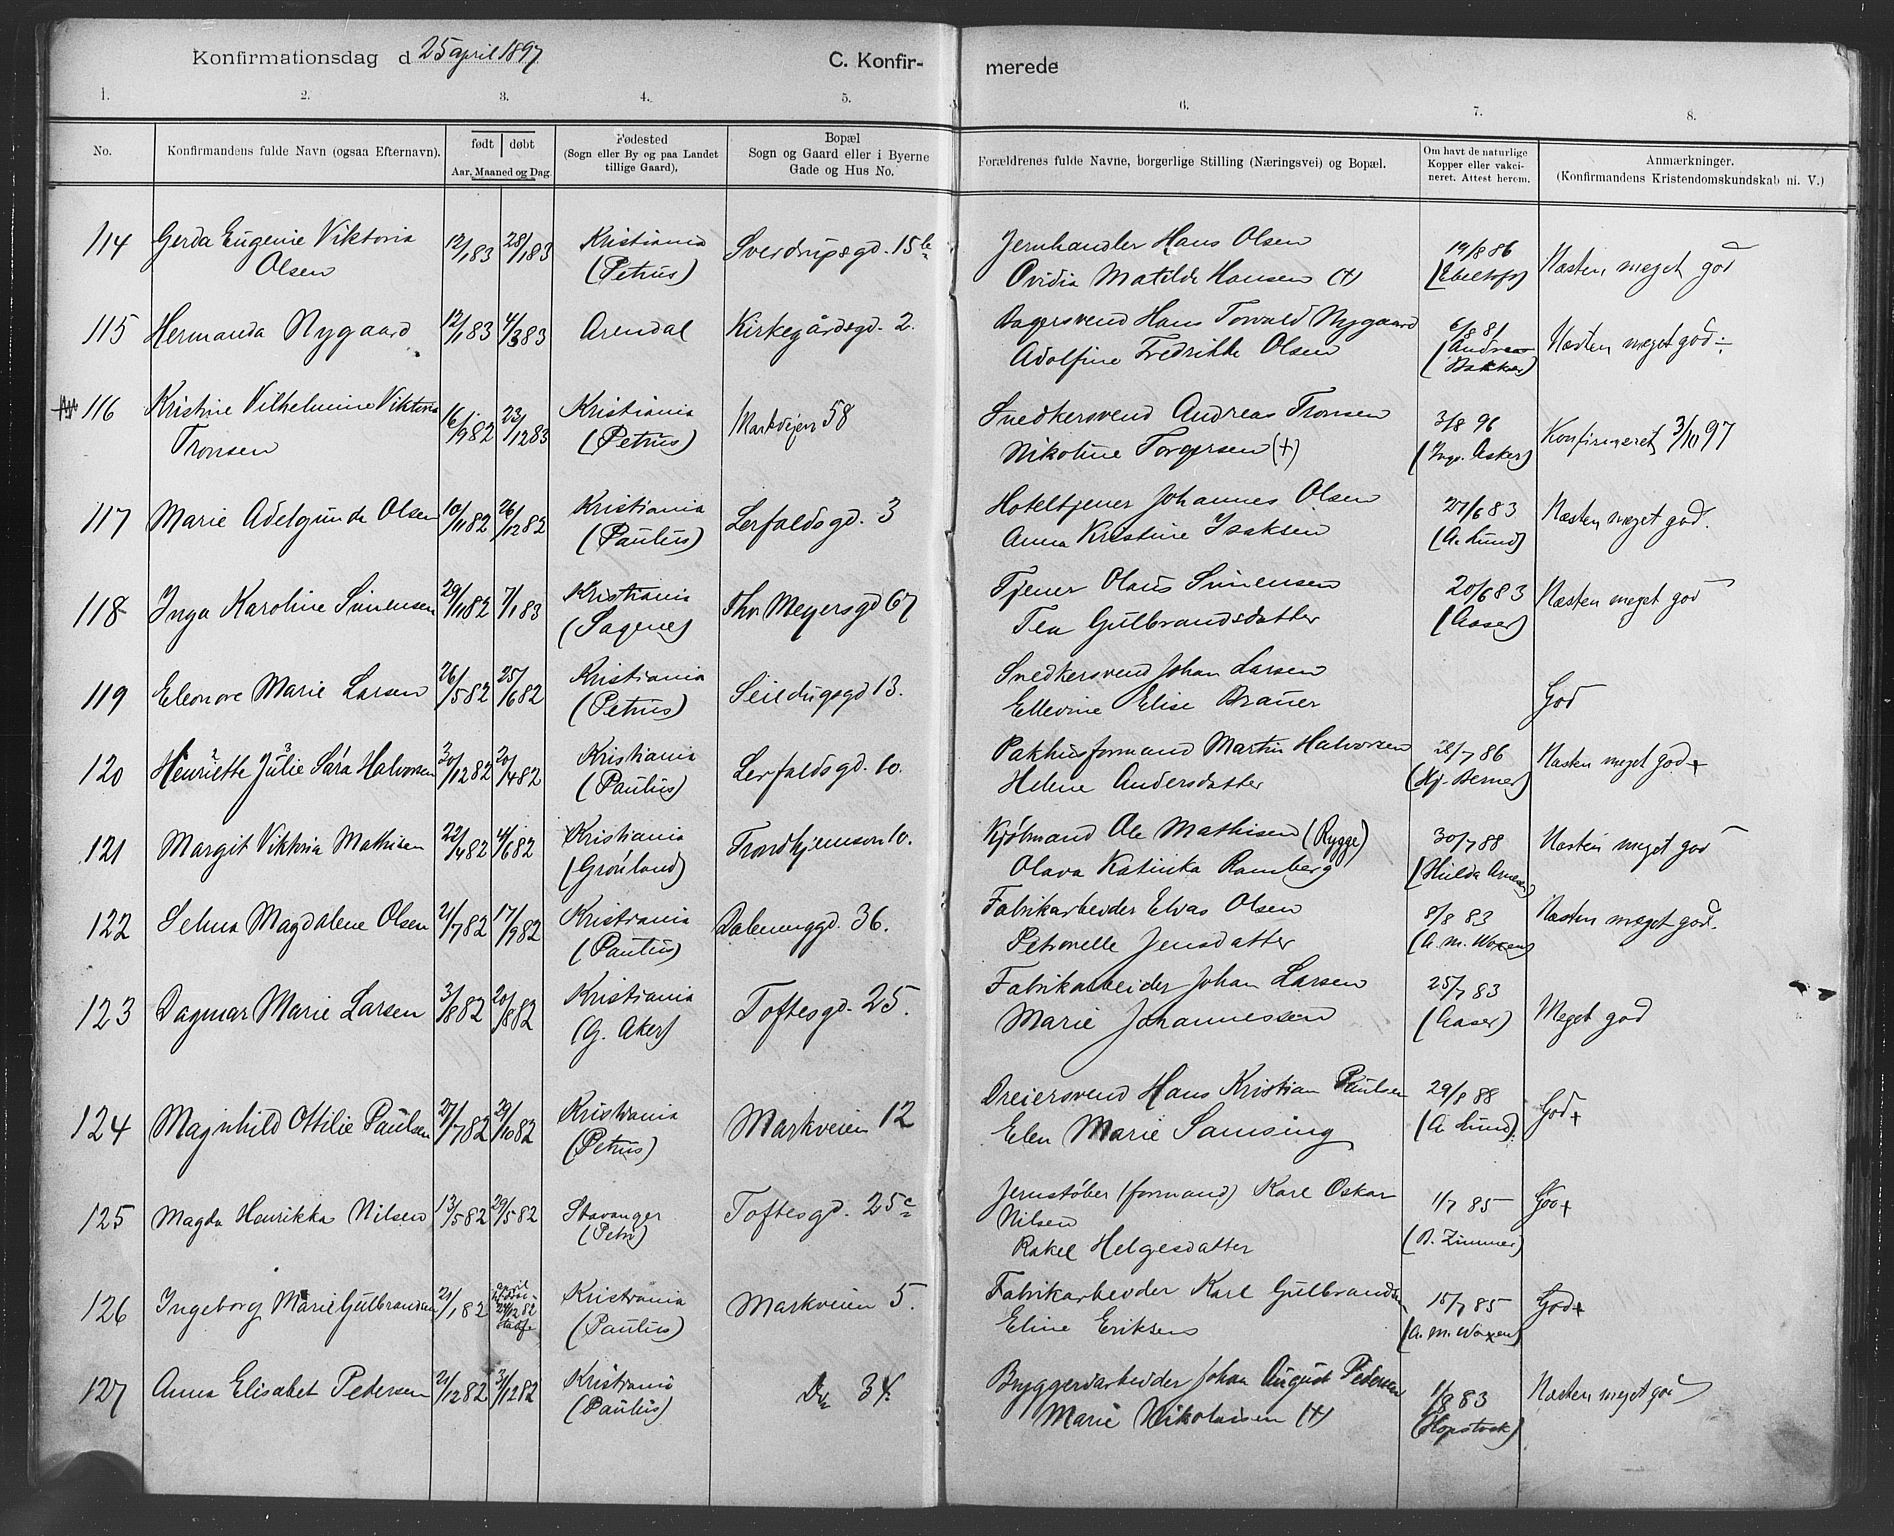 Konfirmationsdag d 25 april 1897
C. Konfir-
merede
1. 2. 3. 4. 5. 6. 7. 8.
No.
Konfirmandens fulde Navn (ogsaa Efternavn).
født døbt
Aar, Maaned og Dag.
Fødested
(Sogn eller By og paa Landet
tillige Gaard).
Bopæl
Sogn og Gaard eller i Byerne
Gade og Hus No.
Forældrenes fulde Navne, borgerlige Stilling (Næringsvei) og Bopæl.
Om havt de naturlige
Kopper eller vakci-
neret. Attest herom.
Anmærkninger.
(Konfirmandens Kristendomskundskab ni. V.)
114 Gerda Eugenie Viktoria
Olsen
12/1 83 28/1 83
Kristiania
(Petrus)
Sverdrupsgd. 15b
Jernhandler Hans Olsen
Ovidia Matilde Hansen (+)
19/8 86
(Ebeltoft)
Næsten meget god
115 Hermanda Nygaard
12/1 83 4/3 83
Arendal
Kirkegårdsgd. 2.
Bagersvend Hans Torvald Nygaard
Adolfine Fredrikke Olsen
6/8 81
(Andreas
Bakker)
Næsten meget god ÷
116 Kristine Vilhelmine Viktoria
Tronsen
16/9 82 23/12 83
Kristiania
(Petrus)
Markveien 58
Snedkersvend Andreas Tronsen
Nikoline Torgersen (+)
3/8 96
Konfirmeret 3/10 97
117 Marie Adelgunde Olsen
10/11 82 26/12 82
Kristiania
(Paulus)
Lerfaldsgd. 3
Hoteltjener Johannes Olsen
Anna Kristine Isaksen
27/6 83
(A. Lund)
Næsten meget god.
118 Inga Karoline Simensen
29/11 82 7/1 83
Kristiania
(Sagene)
Thv. Meyersgd 67
Tjener Olaus Simensen
Tea Gulbrandsdatter
20/6 83
(Aaser)
Næsten meget god
119 Eleonore Marie Larsen
26/5 82 25/6 82
Kristiania
(Petrus)
Seildugsgd 13.
Snedkersvend Johan Larsen
Ellevine Elise Brauer
God
120 Henriette Julie Sara Halvorsen
20/12 82 20/4 82
Kristiania
(Paulus)
Lerfaldsgd. 10.
Pakhusformand Martin Halvorsen
Helene Andersdatter
28/7 86
(Hj. Berner)
Næsten meget god +
121 Margit Viktoria Mathisen
22/4 82 4/6 82
Kristiania
(Grønland)
Trondhjemsvn 10.
Kjøbmand Ole Mathisen (Rygge)
Olava Katinka Ramberg
30/7 88
(Hulda Arnesen)
Næsten meget god
122 Selma Magdalene Olsen
21/7 82 17/9 82
Kristiania
(Paulus)
Dælenenggd. 36.
Fabrikarbeider Elias Olsen
Petronelle Jensdatter
8/8 83
(A. M. Woxen)
Næsten meget god.
123 Dagmar Marie Larsen
3/8 82 20/8 82
Kristiania
(G. Aker)
Toftesgd. 25.
Fabrikarbeider Johan Larsen
Marie Johannessen
25/7 83
(Aaser)
Meget god
124 Magnhild Ottilie Paulsen
27/7 82 29/10 82
Kristiania
(Petrus)
Markveien 12
Dreiersvend Hans Kristian Paulsen
Elen Marie Samsing
29/8 88
(A. Lund).
God +
125 Magda Henrikka Nilsen
13/5 82 29/5 82
Stavanger
(Petri)
Toftesgd. 25c
Jernstøber (formand) Karl Oskar
Nilsen
Rakel Helgesdatter
1/7 85
(B. Zimmer)
God +
126 Ingeborg Marie Gulbrandsen
21/1 82 24/12 82
Kristiania
(Paulus)
Markveien 5.
Fabrikarbeider Karl Gulbrandsen
Eline Eriksen
15/7 85
(A. M. Woxen)
God +
127 Anna Elisabet Pedersen
21/12 82 31/12 82
Kristiania
(Paulus)
Do 34.
Bryggeriarbeider Johan August Pedersen
Marie Nikolaisen (+)
1/8 83
(Hopstock)
Næsten meget god